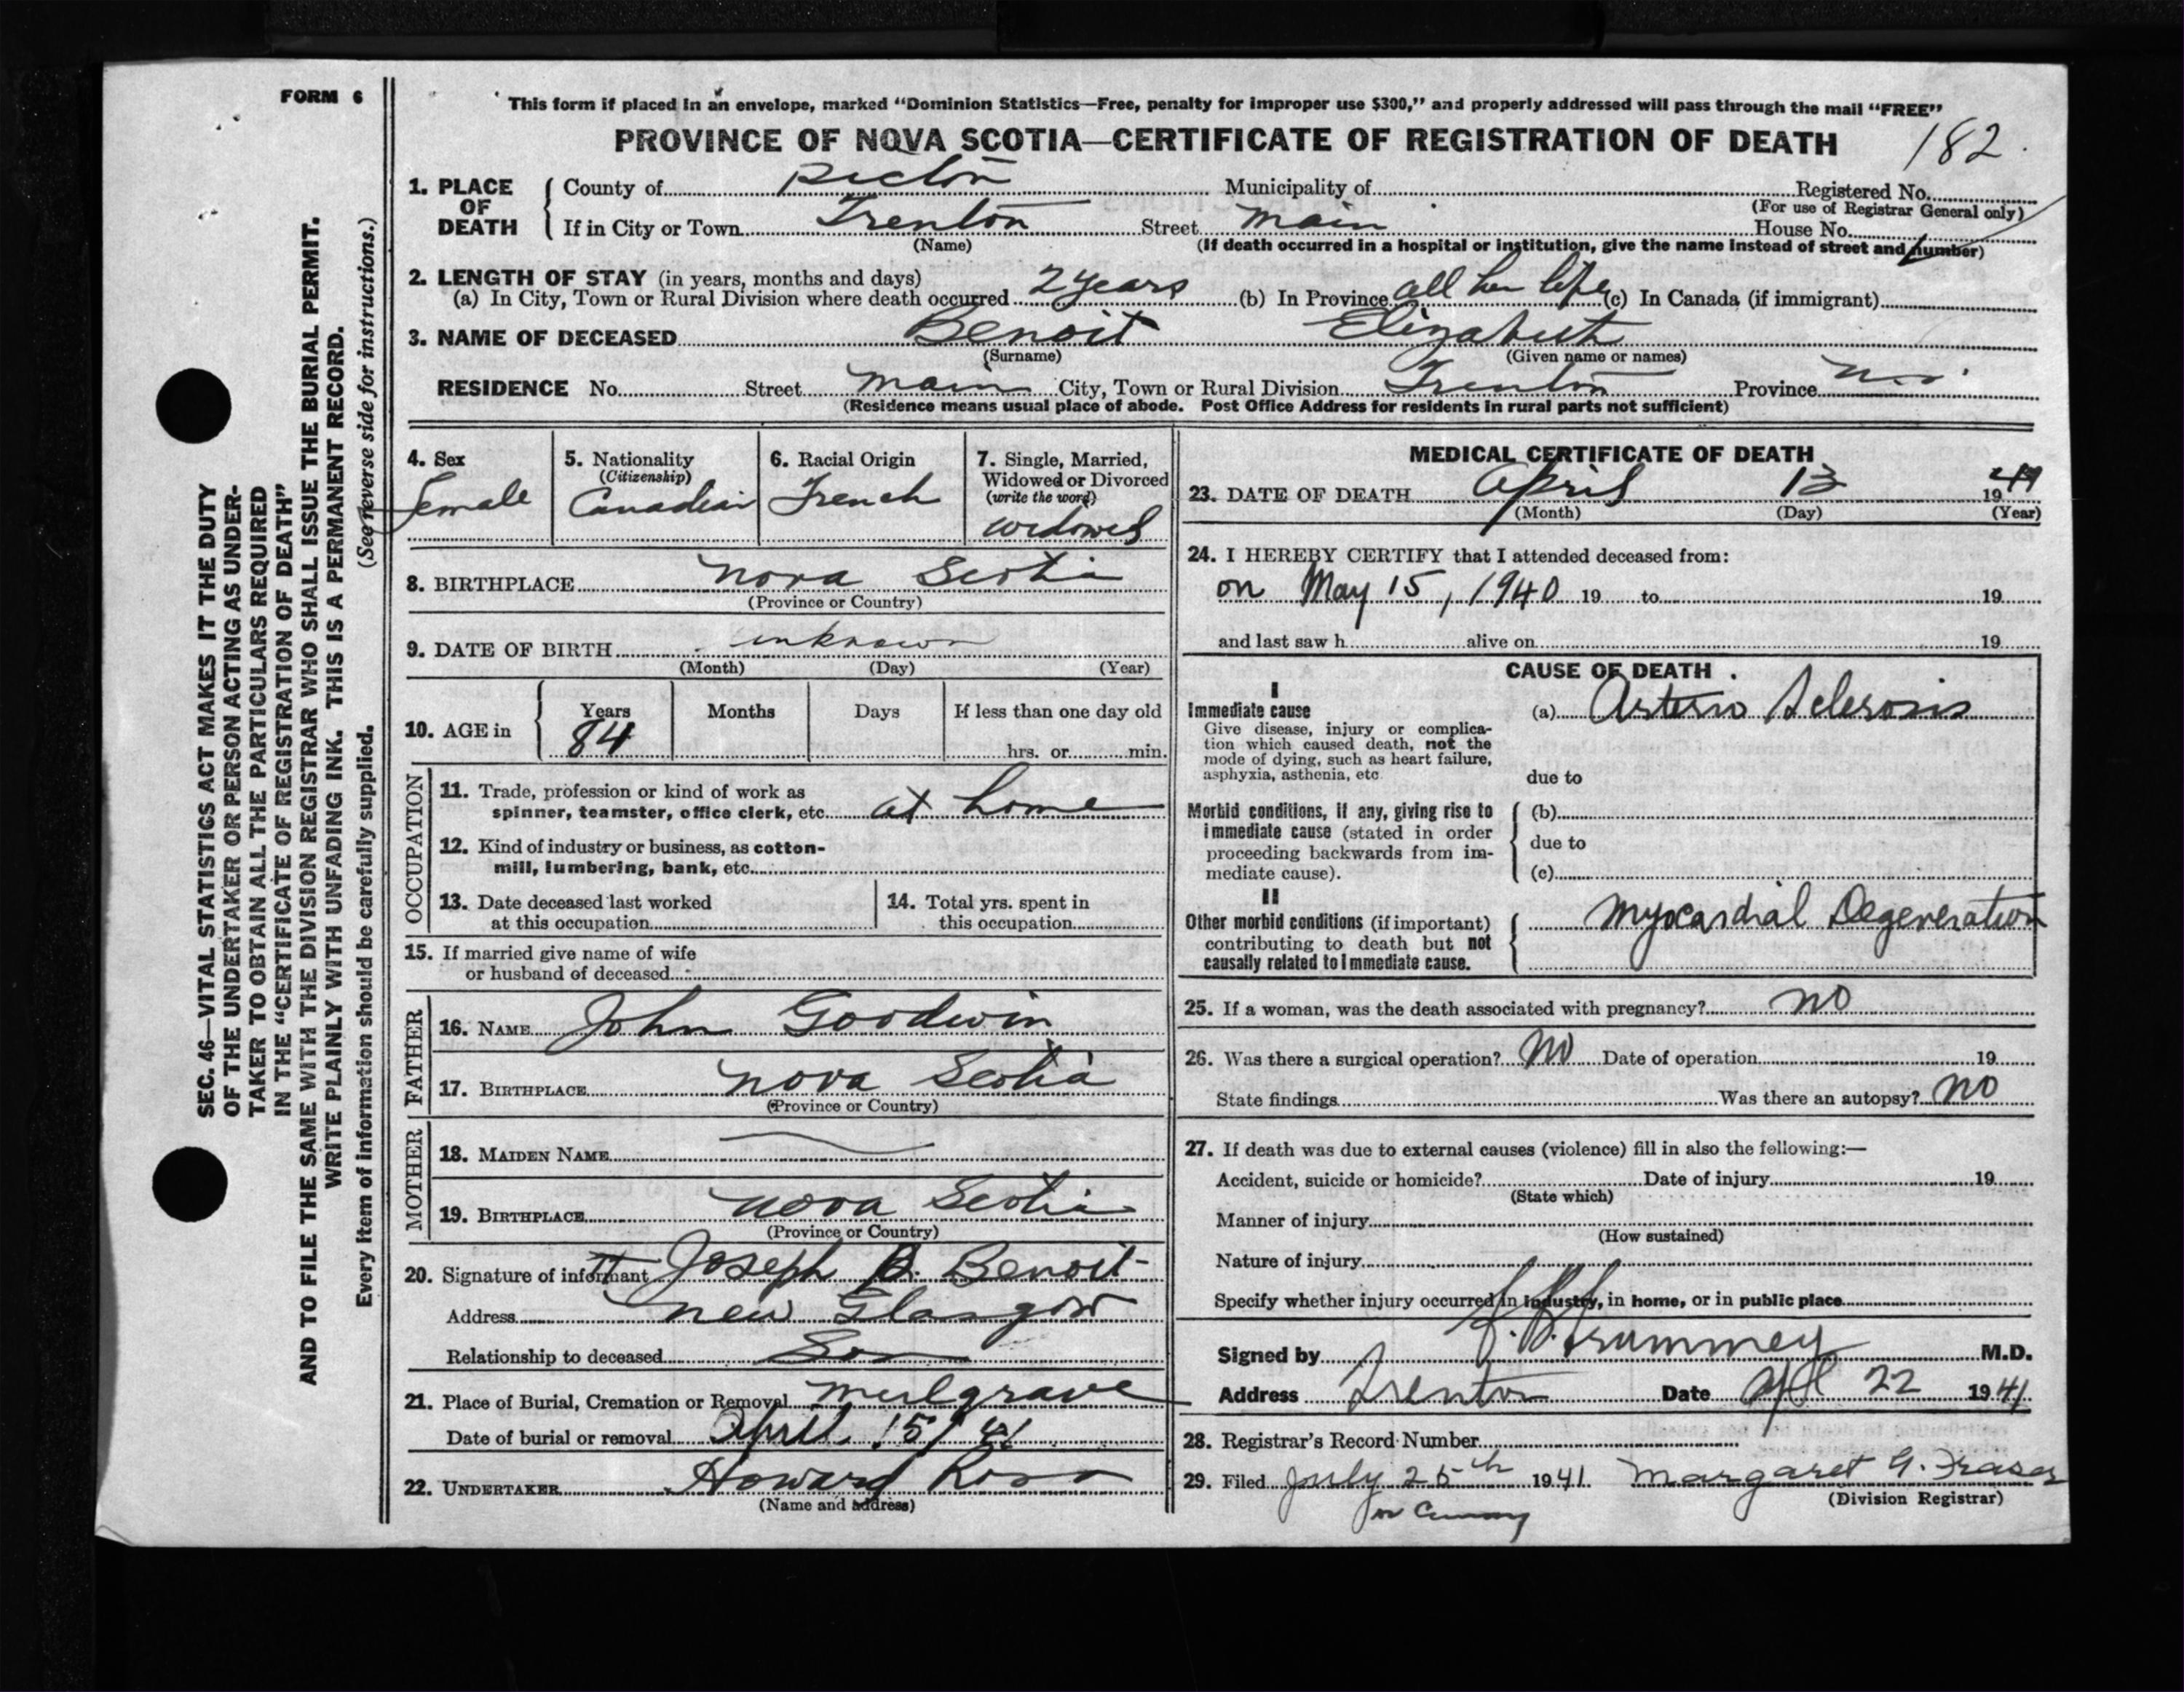 FORM 6
This form if placed in an envelope, marked "Dominion Statistics—Free, penalty for improper use $300," and properly addressed will pass through the mail "FREE"
PROVINCE OF NOVA SCOTIA—CERTIFICATE OF REGISTRATION OF DEATH
182
1. PLACE OF DEATH
County of Pictou Municipality of Registered No.
(For use of Registrar General only)
If in City or Town Trenton Street Main House No.
(Name) (If death occurred in a hospital or institution, give the name instead of street and number)
2. LENGTH OF STAY (in years, months and days)
(a) In City, Town or Rural Division where death occurred 2 years (b) In Province all her life (c) In Canada (if immigrant)
3. NAME OF DECEASED Benoit Elizabeth
(Surname) (Given name or names)
RESIDENCE No. Street Main City, Town or Rural Division Trenton Province N.S.
(Residence means usual place of abode. Post Office Address for residents in rural parts not sufficient)
4. Sex
female
5. Nationality
(Citizenship)
Canadian
6. Racial Origin
French
7. Single, Married,
Widowed or Divorced
(write the word)
widowed
8. BIRTHPLACE Nova Scotia
(Province or Country)
9. DATE OF BIRTH unknown
(Month) (Day) (Year)
10. AGE in
Years Months Days If less than one day old
84 hrs. or min.
OCCUPATION
11. Trade, profession or kind of work as
spinner, teamster, office clerk, etc. at home
12. Kind of industry or business, as cotton-
mill, lumbering, bank, etc.
13. Date deceased last worked
at this occupation
14. Total yrs. spent in
this occupation
15. If married give name of wife
or husband of deceased
FATHER
16. NAME John Goodwin
17. BIRTHPLACE Nova Scotia
(Province or Country)
MOTHER
18. MAIDEN NAME
19. BIRTHPLACE Nova Scotia
(Province or Country)
20. Signature of informant Joseph B. Benoit
Address New Glasgow
Relationship to deceased Son
21. Place of Burial, Cremation or Removal Mulgrave
Date of burial or removal April 15/41
22. UNDERTAKER Howard Ross
(Name and address)
MEDICAL CERTIFICATE OF DEATH
23. DATE OF DEATH April 13 1941
(Month) (Day) (Year)
24. I HEREBY CERTIFY that I attended deceased from:
on May 15, 1940 19 to 19
and last saw h alive on 19
CAUSE OF DEATH
I
Immediate cause
Give disease, injury or complica-
tion which caused death, not the
mode of dying, such as heart failure,
asphyxia, asthenia, etc.
(a) Arterio Sclerosis
due to
Morbid conditions, if any, giving rise to
immediate cause (stated in order
proceeding backwards from im-
mediate cause).
(b)
due to
(c)
II
Other morbid conditions (if important)
contributing to death but not
causally related to immediate cause.
Myocardial Degeneration
25. If a woman, was the death associated with pregnancy? no
26. Was there a surgical operation? no Date of operation 19
State findings Was there an autopsy? no
27. If death was due to external causes (violence) fill in also the following:—
Accident, suicide or homicide? Date of injury 19
(State which)
Manner of injury
(How sustained)
Nature of injury
Specify whether injury occurred in industry, in home, or in public place
Signed by M.D.
Address Trenton Date Apl 22 1941
28. Registrar's Record Number
29. Filed July 25th 1941 Margaret G. Fraser
(Division Registrar)
SEC. 46—VITAL STATISTICS ACT MAKES IT THE DUTY
OF THE UNDERTAKER OR PERSON ACTING AS UNDER-
TAKER TO OBTAIN ALL THE PARTICULARS REQUIRED
IN THE "CERTIFICATE OF REGISTRATION OF DEATH"
AND TO FILE THE SAME WITH THE DIVISION REGISTRAR WHO SHALL ISSUE THE BURIAL PERMIT.
WRITE PLAINLY WITH UNFADING INK. THIS IS A PERMANENT RECORD.
Every item of information should be carefully supplied. (See reverse side for instructions.)